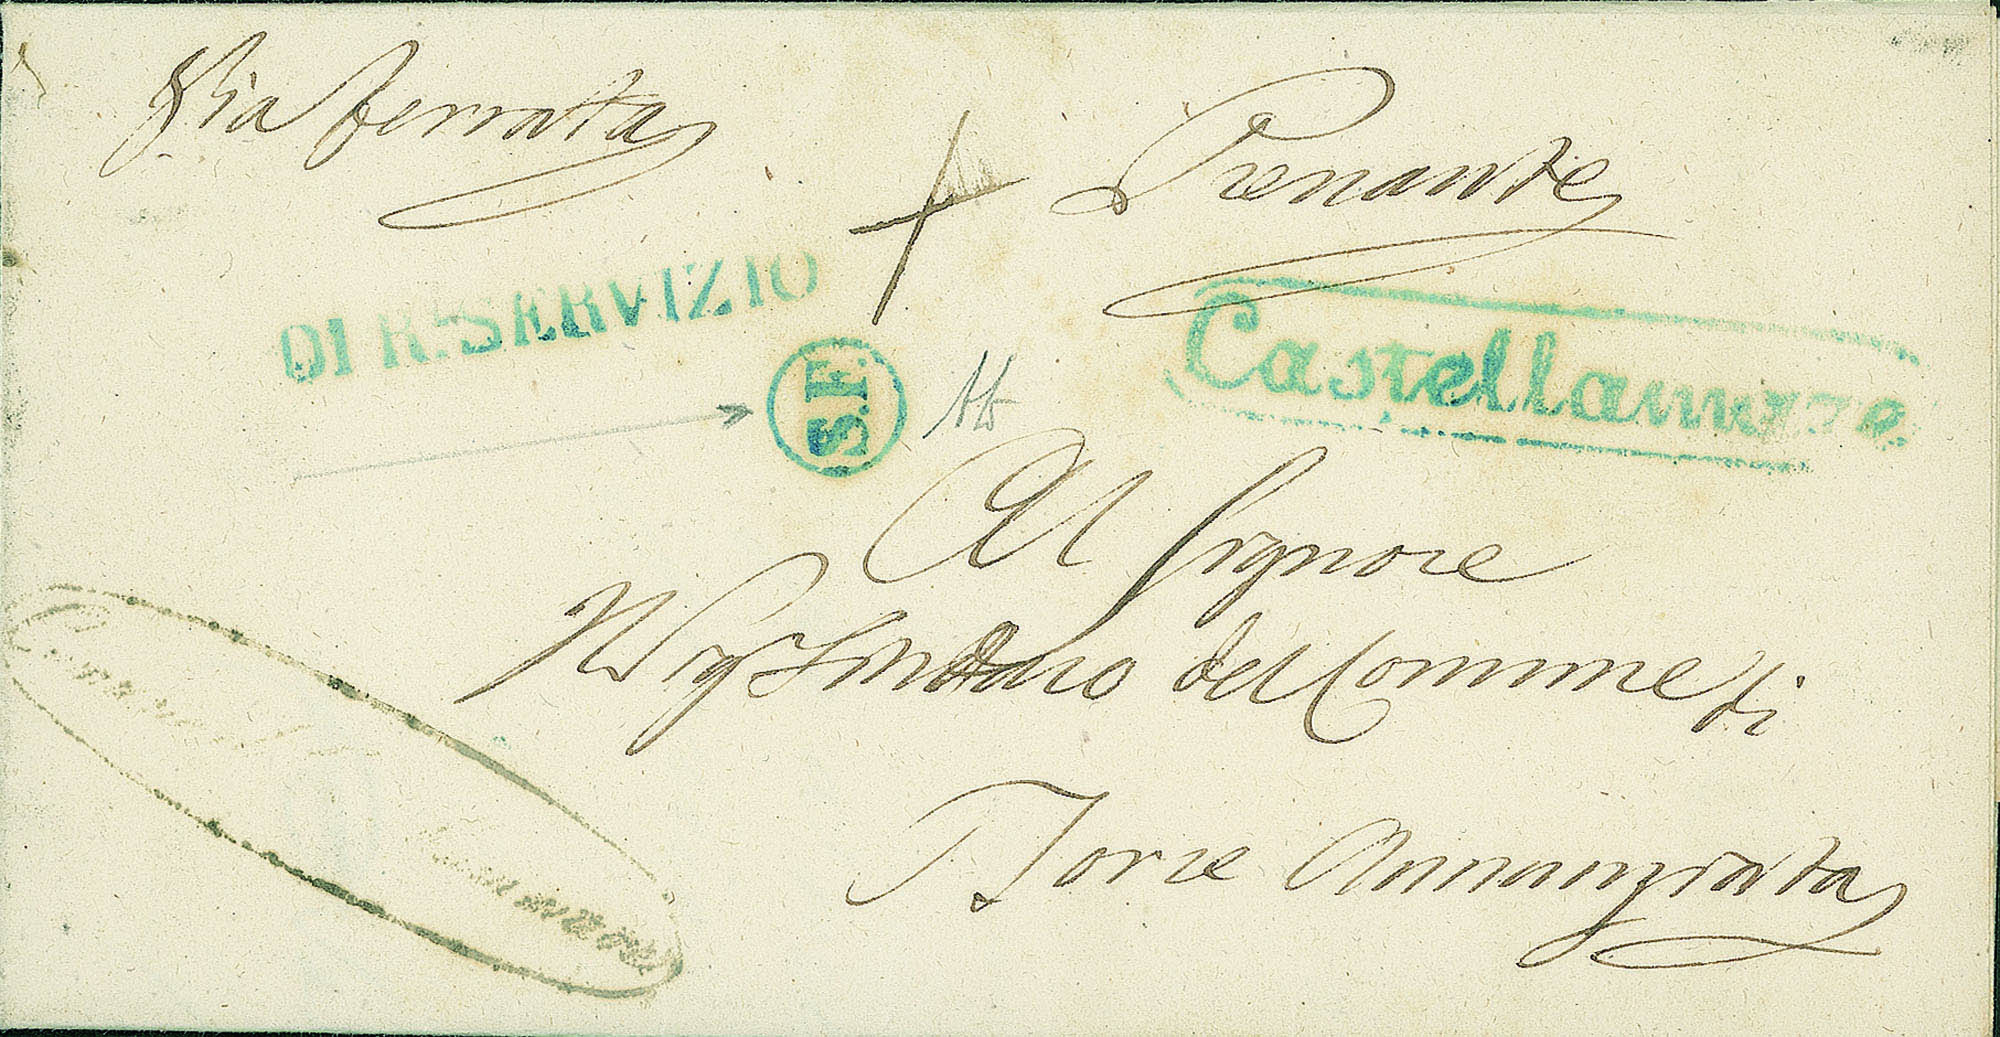 Via ferrata
Prenante
DI R. SERVIZIO
S.F.
Castellammare
Al Signore
Sindaco del Comune di
Torre Annunziata